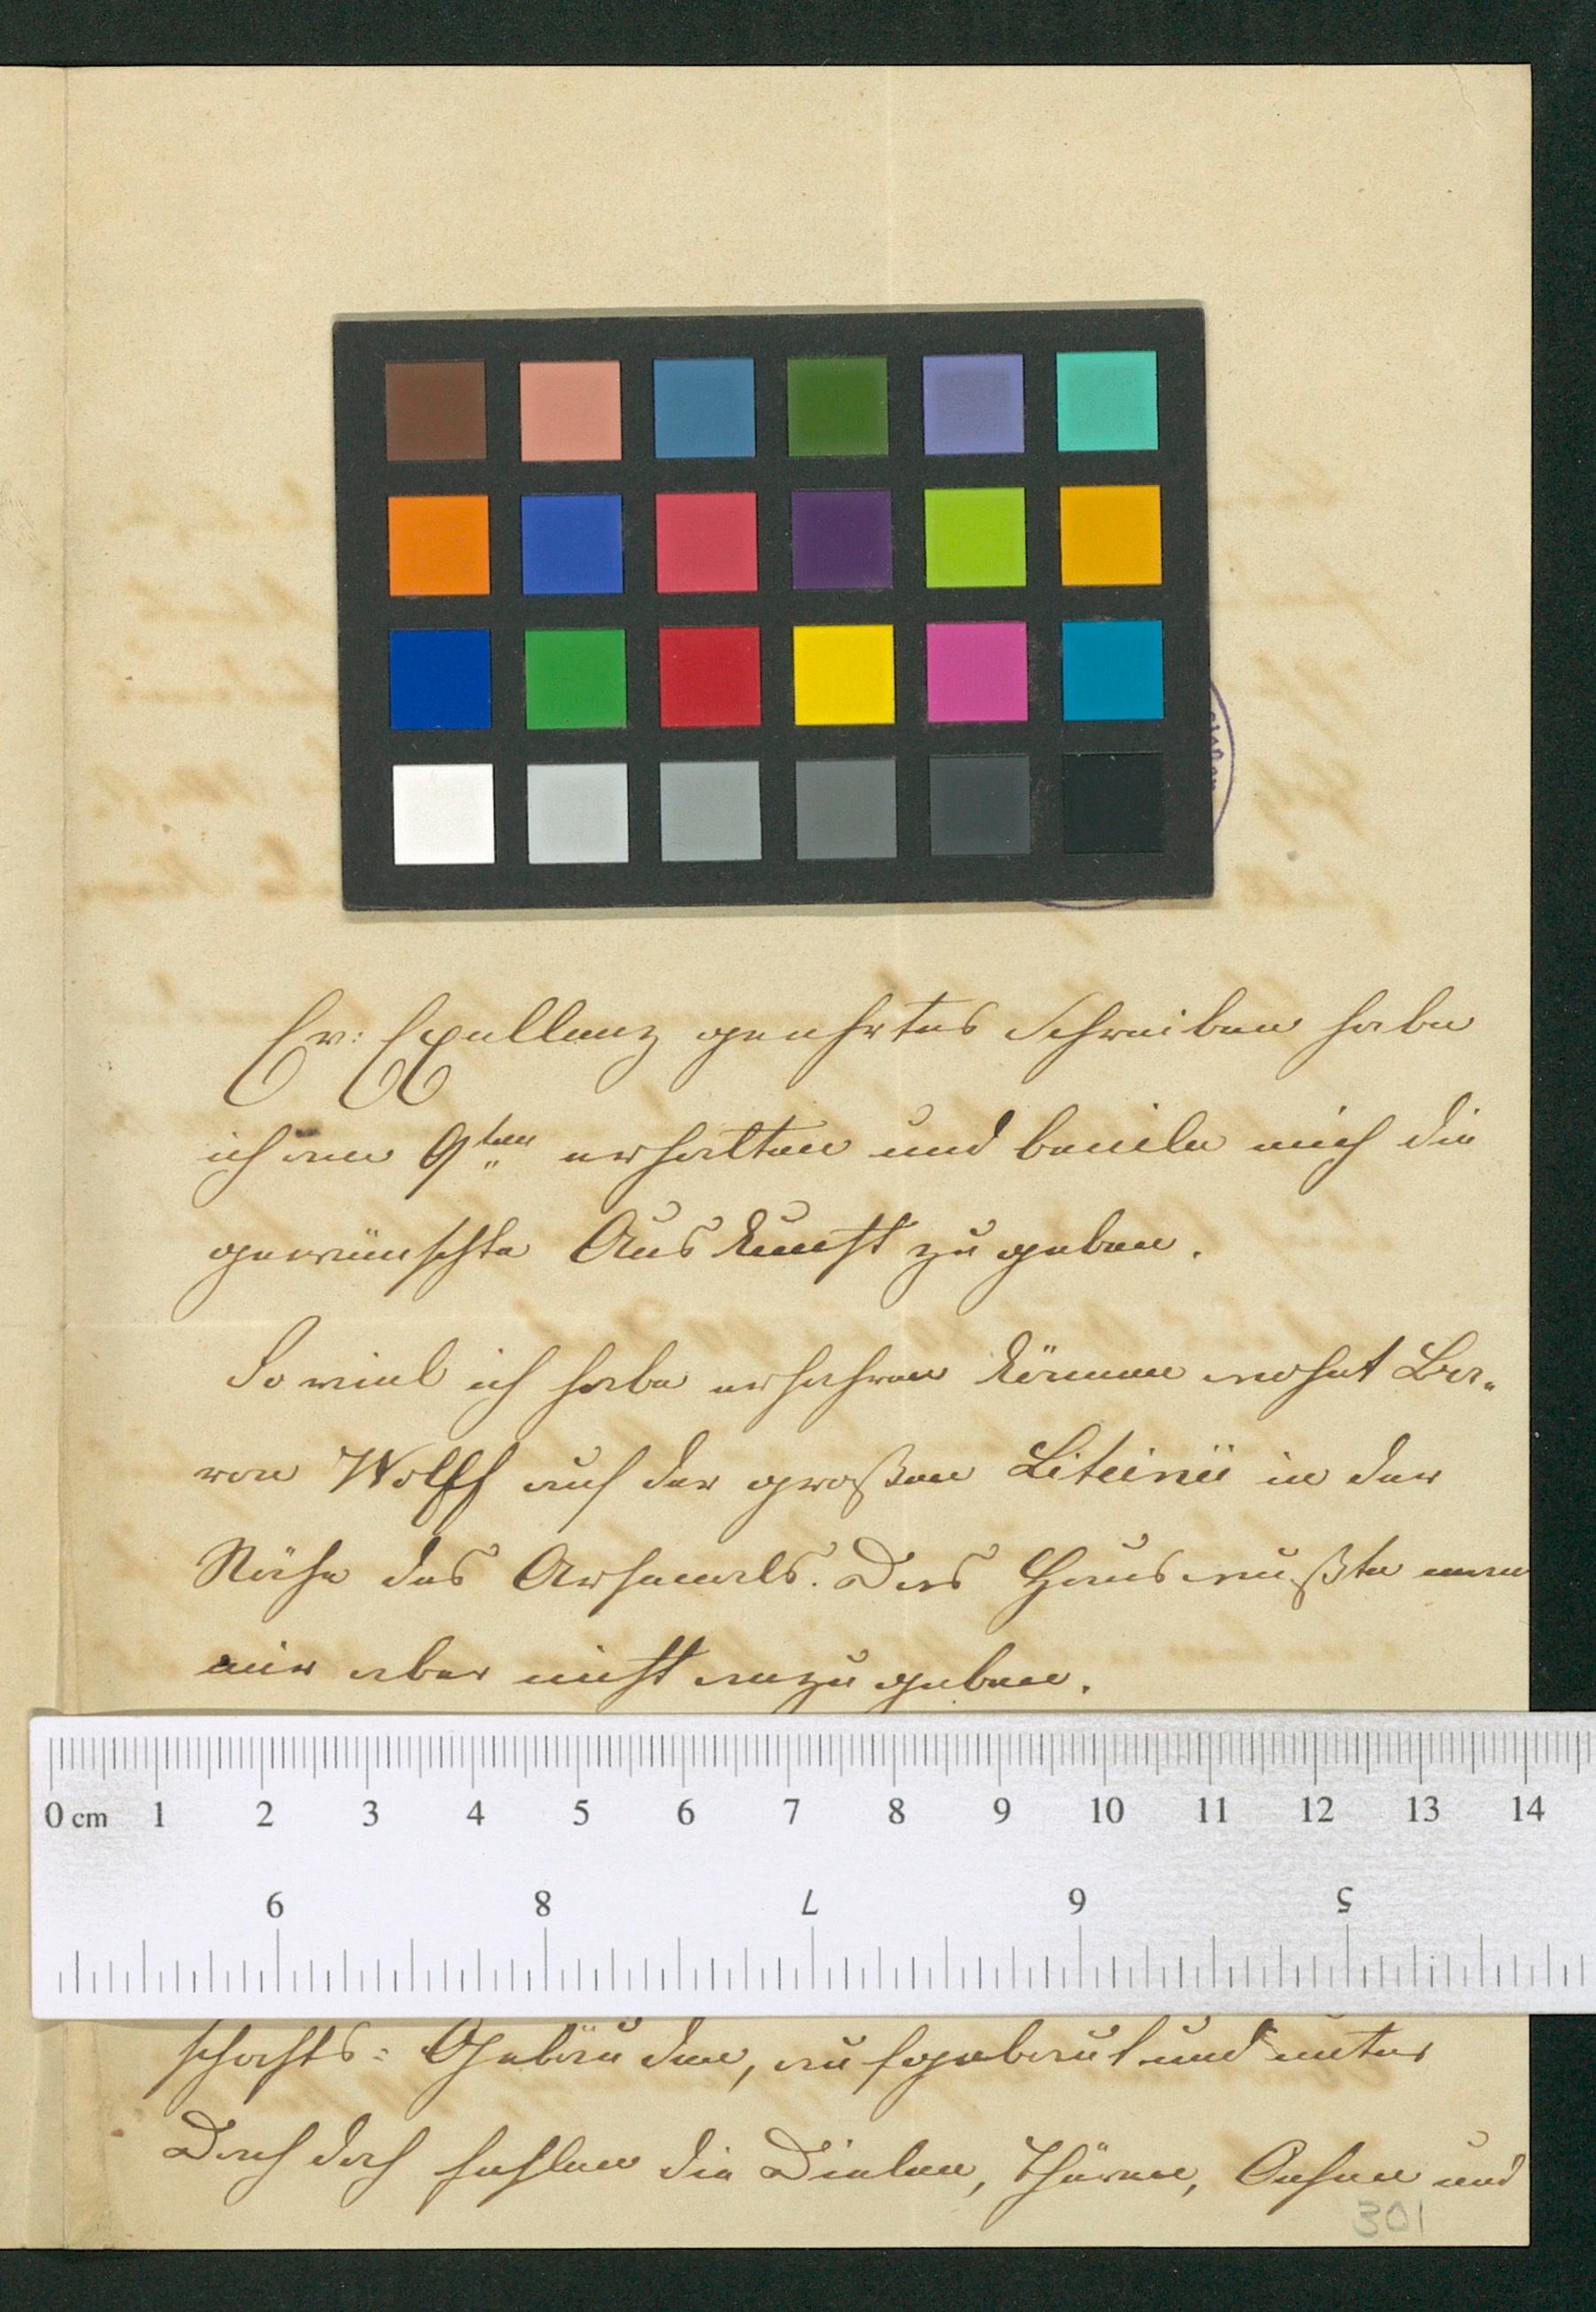 Ew: Excellenz geehrtes Schreiben habe
ich am 9ten erhalten und beeile mich die
gewünschte Auskunft zu geben.
So viel ich habe erfahren können wohnt Ba-
ron Wolff auf der großen Liteinii in der
Nähe des Arsenals. Das Haus wußte man
mir aber nicht anzugeben.
0 cm 1 2 3 4 5 6 7 8 9 10 11 12 13 14
9 8 7 6 5
schafts= Gebäuden, aufgebaut und unter
Dach doch fehlen die Dielen, Thüren, Oefen und
301